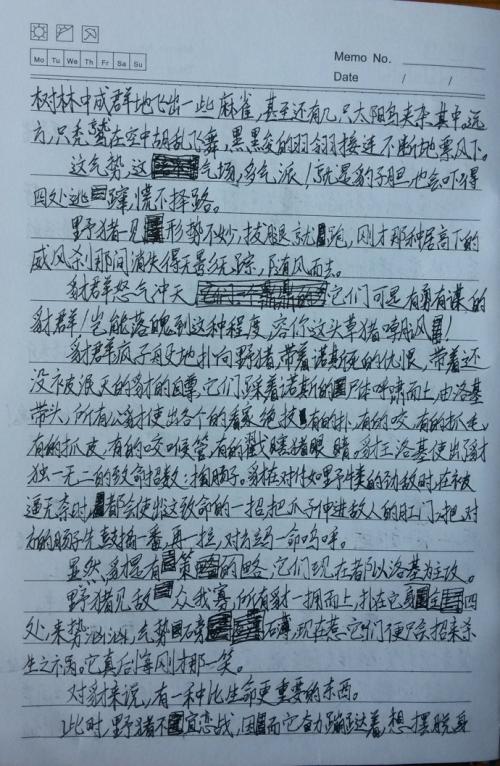 Mo Tu We Th Fr Sa Su
Memo No.
Date / /
树林中成群地飞出一些麻雀,甚至还有几只太阳鸟夹杂其中。远
方,只秃鹫在空中胡乱飞舞,黑黑发的羽翎接连不断地飘下。
这气势,这气场,多气派!就是豹子胆也会吓得
四处逃窜,慌不择路。
野猪一见形势不妙,拔腿就跑,刚才那种居高下的
威风刹那间消失得无影无踪,随风而去。
豺群怒气冲天它们可是有勇有谋的
豺群!岂能落魄到这种程度,容你这头草猪
豺群疯了般地扑向野猪,带着诺斯的仇恨,带着还
没被泯灭的豺的自尊,它们踩着诺斯的尸体呼啸而上,由洛基
带头,所有公豺使出各个的看家绝技有的扑,有的咬,有的抓毛,
有的抓皮,有的咬喉管,有的戳瞎猪眼睛。豺王洛基使出了豺
独一无二的致命招数:掏肠子。豺在对付如野牛类的劲敌时,在被
逼无奈时,都会使出这致命的一招把爪子伸进敌人的肛门,把对
方的肠子先鼓捣一番,再一拉,对方一命呜呼。
显然,豺是有策略的,它们现在都以洛基为主攻。
野猪见敌众我寡,所有豺一拥而上,扎在它身四
处,来势汹汹,气势磅礴,现在惹它们便只会招来杀
生之祸。它真后悔刚才那一笑。
对豺来说,有一种比生命更重要的东西。
此时,野猪不宜恋战,因而它奋力蹦跶着,想摆脱身